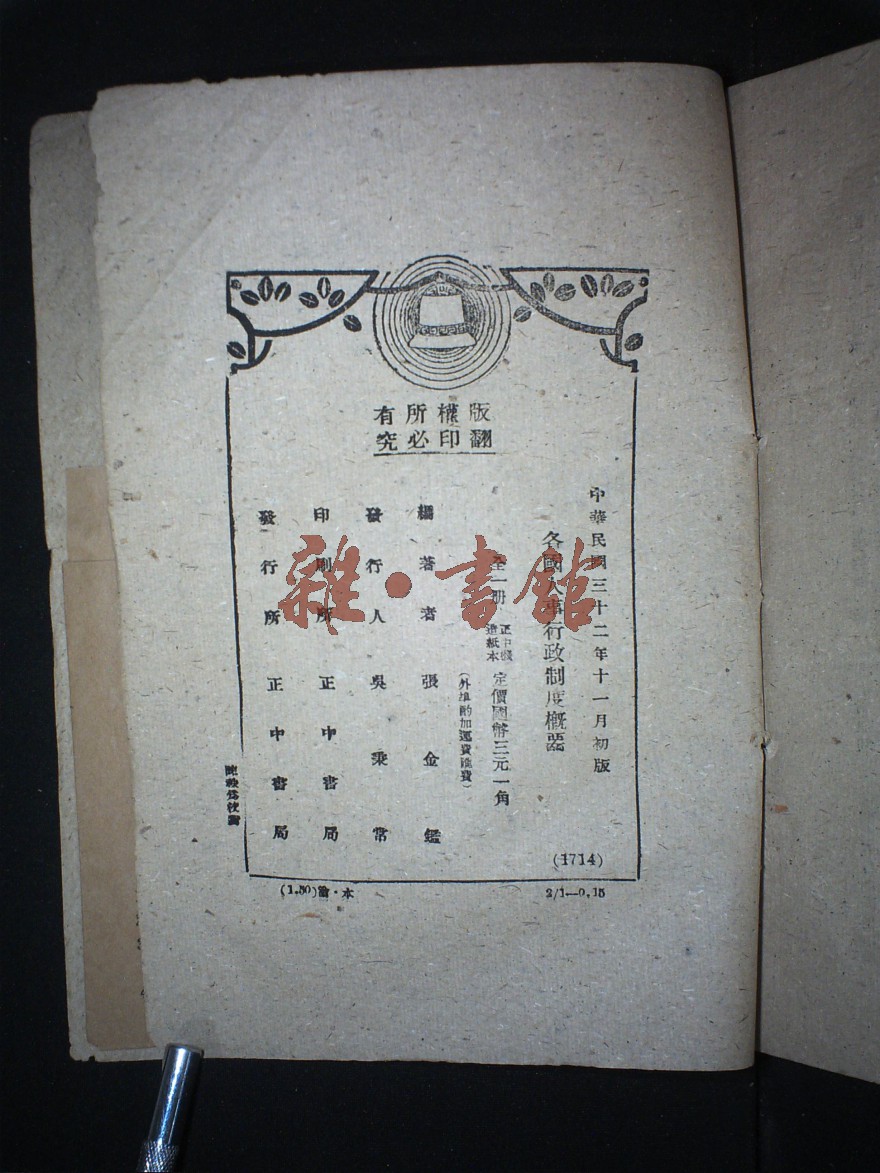 版權所有
翻印必究
中華民國三十二年十一月初版
各國人事行政制度概要
全一冊 正中機造紙本 定價國幣三元一角
(外埠酌加運費匯費)
編著者 張金鑑
發行人 吳秉常
印刷所 正中書局
發行所 正中書局
(1714)
(1.50)渝·本
2/1—0.15
雜·書館